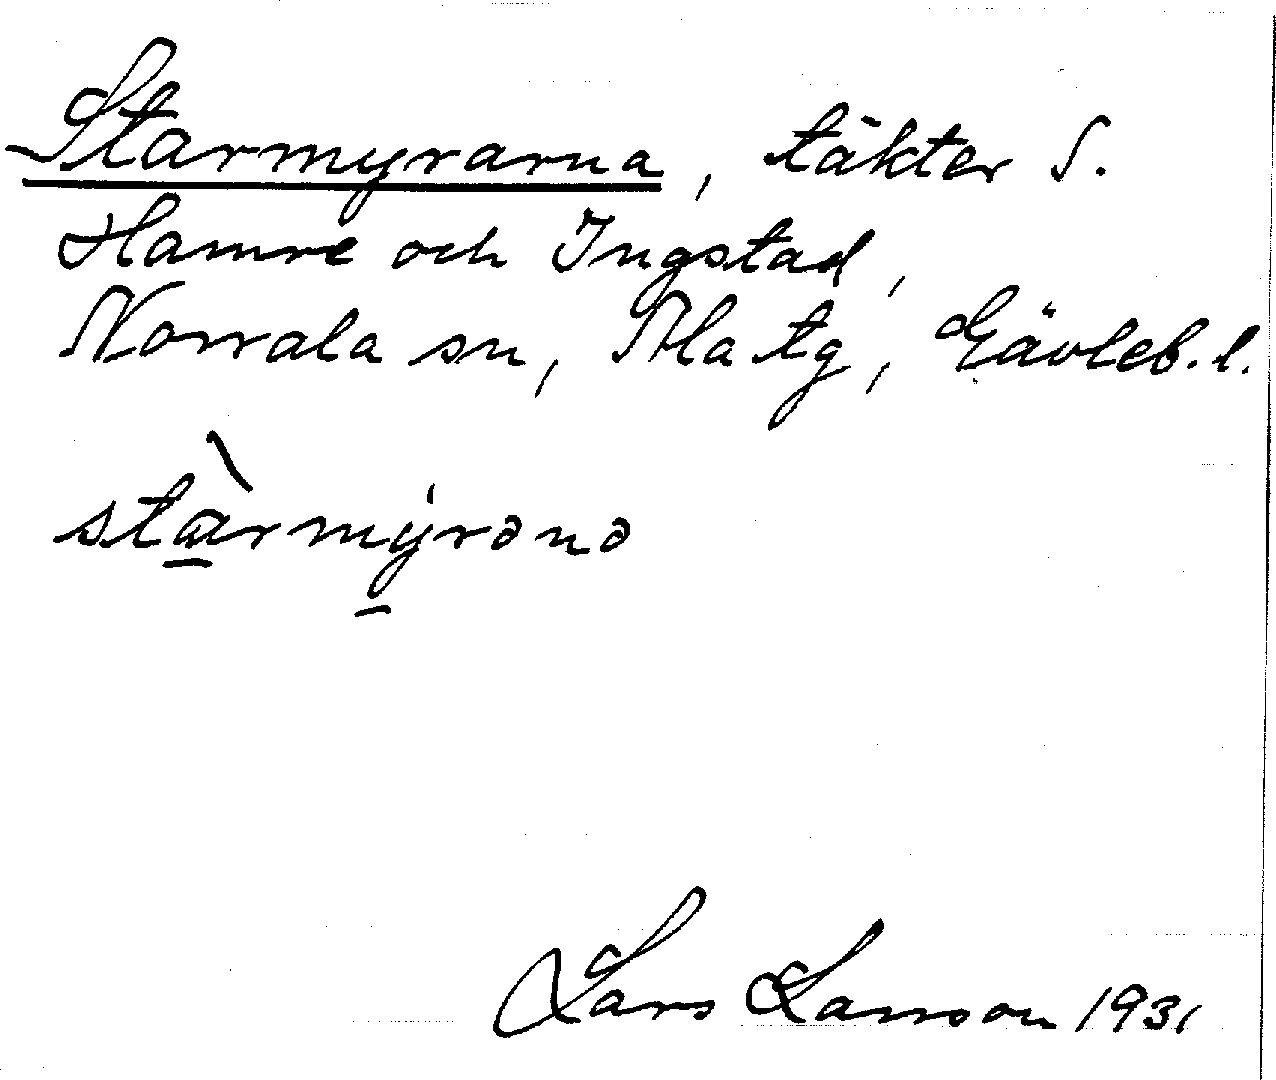 Starmyrarna, täkter S.
Hamre och Ingstad,
Norrala sn, Ala tg, Gävleb. l.
stàrmyrənə
Lars Larsson 1931